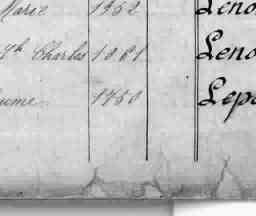 Marie 1752 Leno
Jh Charles 1061 Leno
ume 1750 Lepe